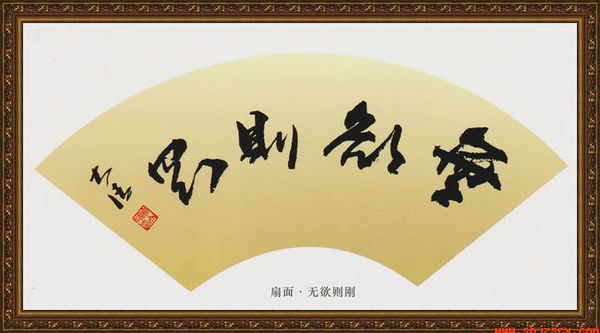 無欲則剛
扇面·无欲则刚